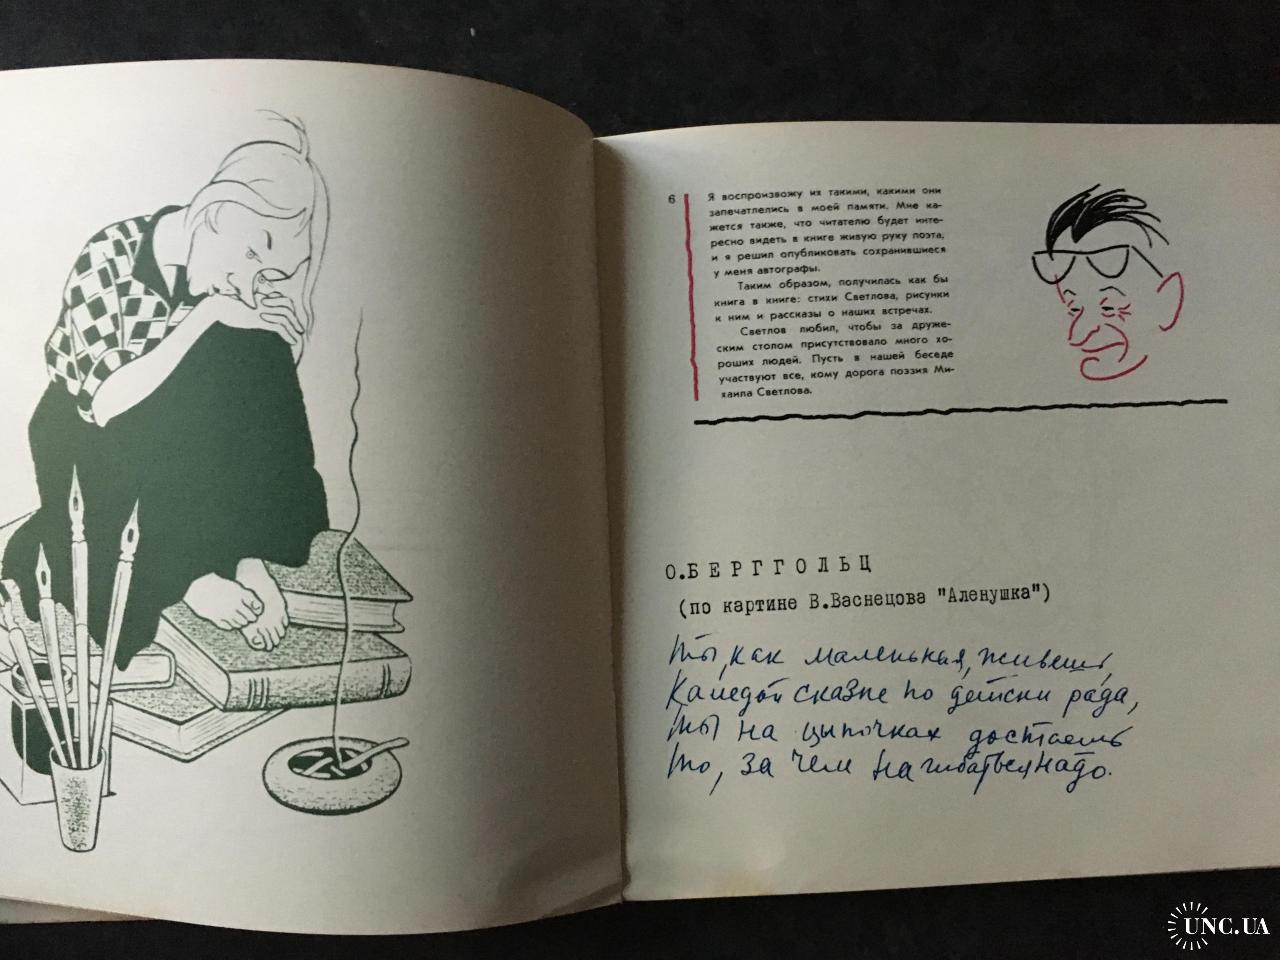 6
Я воспроизвожу их такими, какими они
запечатлелись в моей памяти. Мне ка-
жется также, что читателю будет инте-
ресно видеть в книге живую руку поэта,
и я решил опубликовать сохранившиеся
у меня автографы.
Таким образом, получилась как бы
книга в книге: стихи Светлова, рисунки
к ним и рассказы о наших встречах.
Светлов любил, чтобы за друже-
ским столом присутствовало много хо-
роших людей. Пусть в нашей беседе
участвуют все, кому дорога поэзия Ми-
хаила Светлова.
О.БЕРГГОЛЬЦ
(по картине В.Васнецова "Аленушка")
Ты, как маленькая, живешь,
Каждой сказке по детски рада,
Ты на цыпочках достаешь
То, за чем нагибаться надо.
UNC.UA